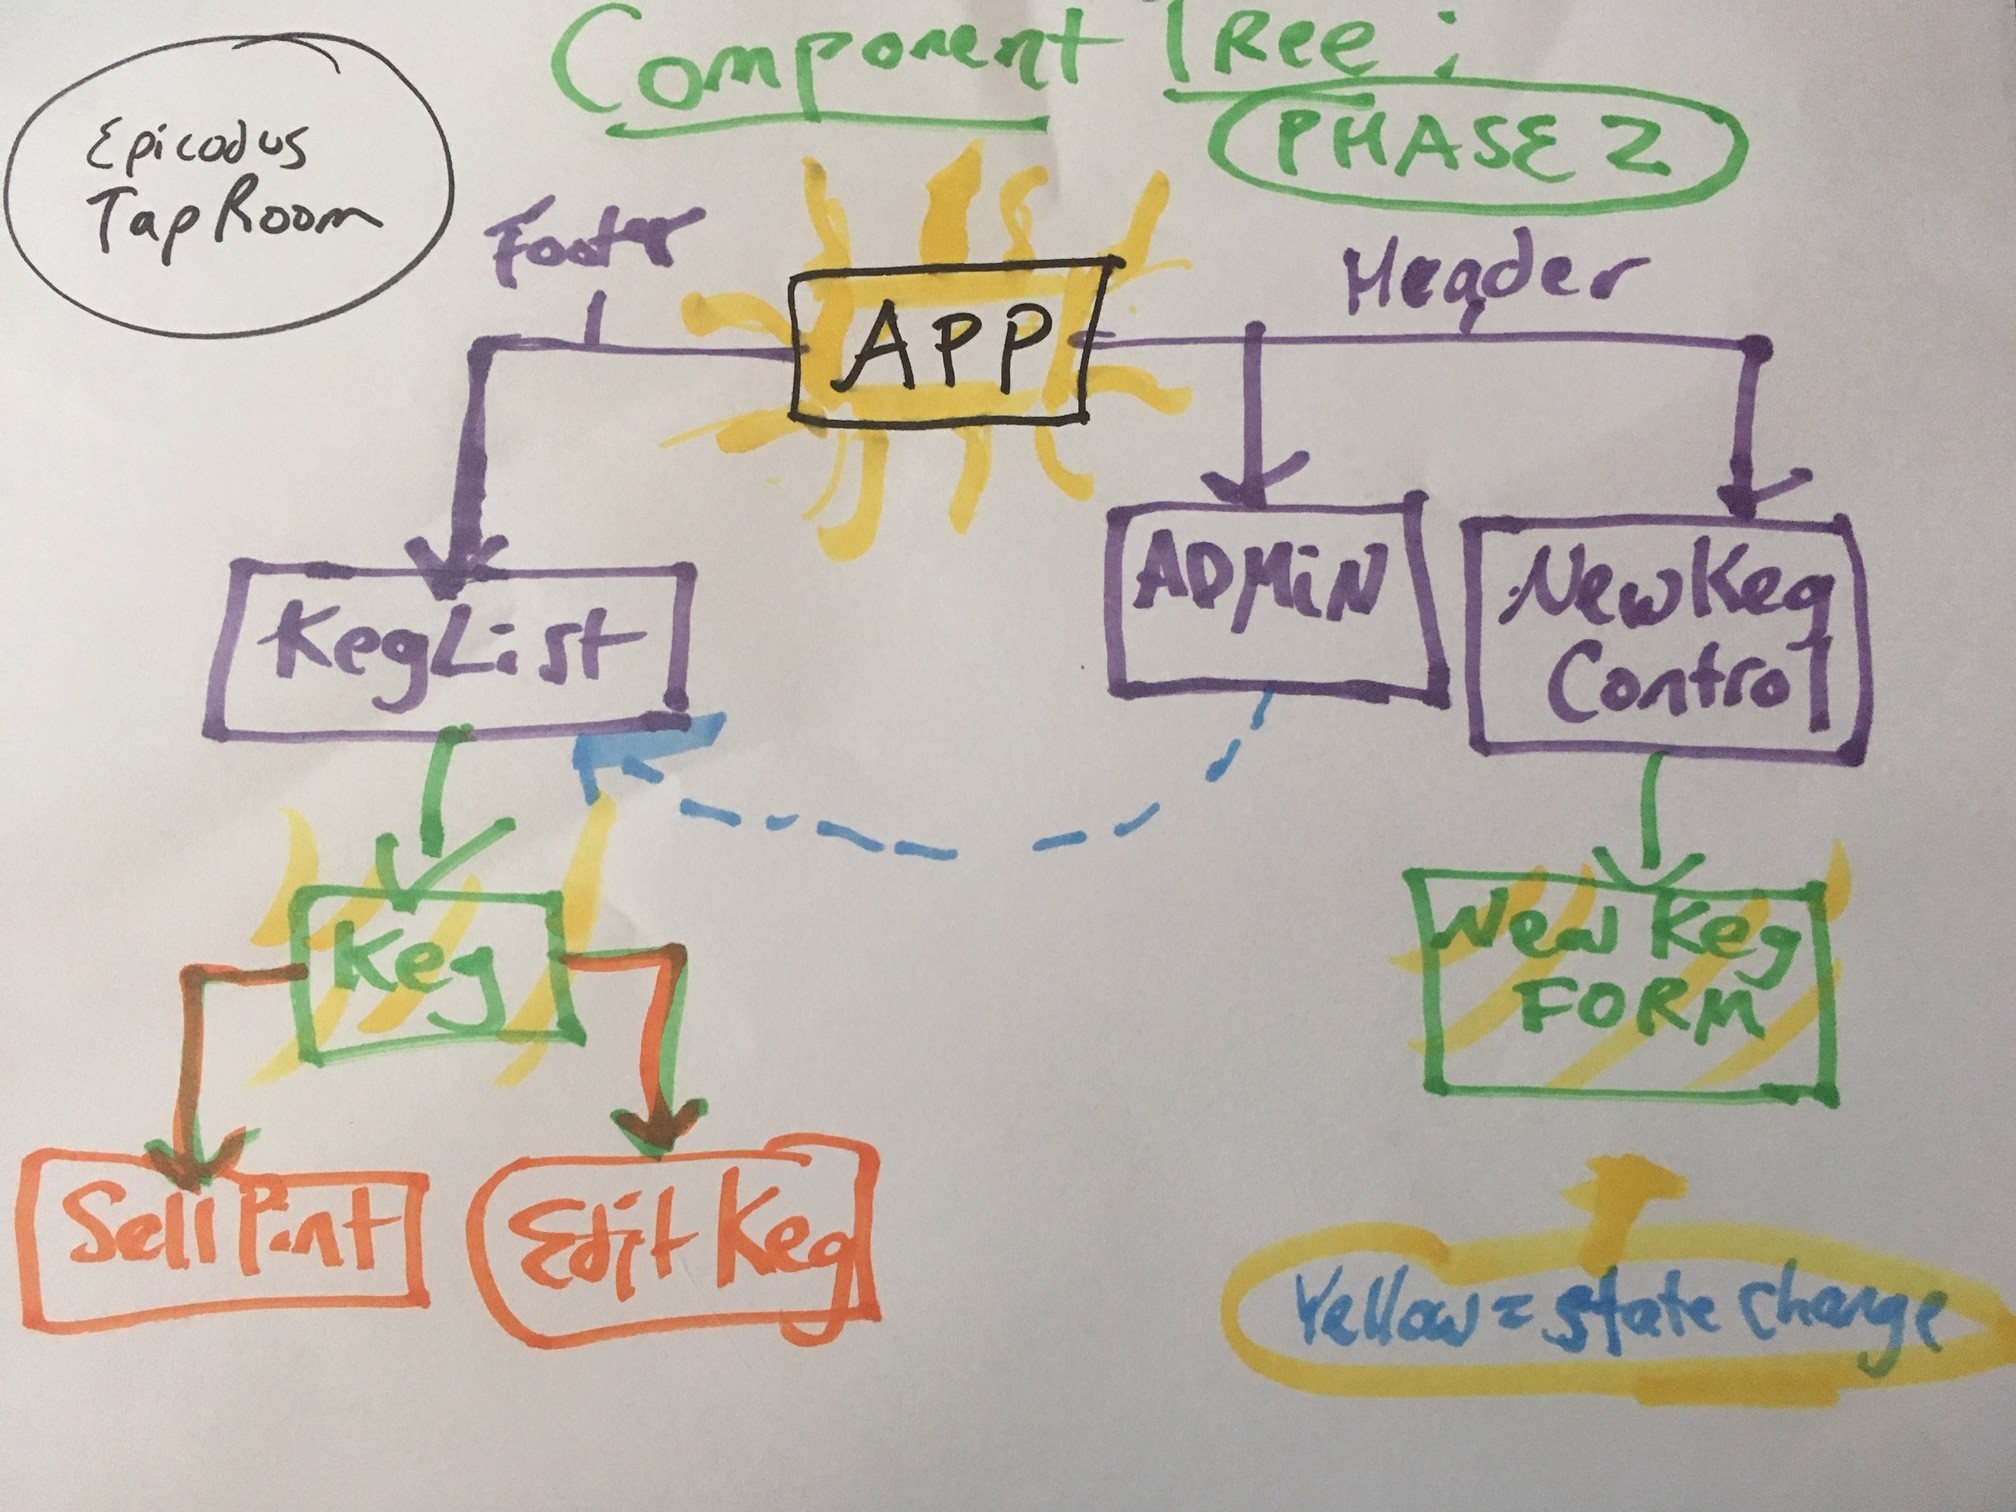 Component Tree:
PHASE 2
Epicodus
Tap Room
Footer
Header
APP
KegList
ADMiN
NewKeg
Control
Keg
New Keg
FORM
Sell Pint
Edit Keg
Yellow = state change